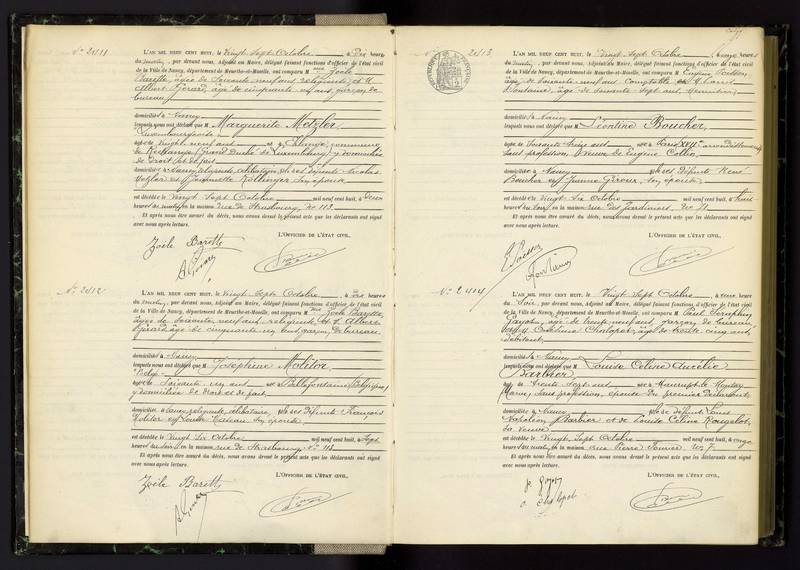 N° 2411
L'AN MIL NEUF CENT HUIT, le Vingt Sept Octobre, à Dix heures
du matin, par devant nous, Adjoint au Maire, délégué faisant fonctions d'officier de l'état civil
de la Ville de Nancy, département de Meurthe-et-Moselle, ont comparu M elle Zoële
âgée de Soixante neuf ans, religieuse et
Albert Girard, âgé de cinquante ans, garçon de
bureau,
domiciliés à Nancy
lesquels nous ont déclaré que M Marguerite Metzler,
Luxembourgeoise
âgée de Vingt neuf ans née à commune
de (Grand Duché de Luxembourg) y domiciliée
de droit et de fait
domiciliée à Nancy, religieuse, célibataire, fille de ses défunts Nicolas
Metzler et Kellinger son épouse,
est décédée le Vingt Sept Octobre mil neuf cent huit, à deux
heures du matin, en la maison rue de Strasbourg, No 113
Et après nous être assuré du décès, nous avons dressé le présent acte que les déclarants ont signé
avec nous après lecture.
L'OFFICIER DE L'ÉTAT CIVIL,
Zoële Barett
A Girard
N° 2412
L'AN MIL NEUF CENT HUIT, le Vingt Sept Octobre, à Dix heures
du matin, par devant nous, Adjoint au Maire, délégué faisant fonctions d'officier de l'état civil
de la Ville de Nancy, département de Meurthe-et-Moselle, ont comparu M elle Zoële
âgée de Soixante neuf ans, religieuse et Albert
Girard, âgé de cinquante ans, garçon de bureau
domiciliés à Nancy
lesquels nous ont déclaré que M Joséphine Molitor
Belge
âgée de Soixante ans née à Bellefontaine (Belgique)
y domiciliée de droit et de fait
domiciliée à Nancy, religieuse, célibataire, fille de ses défunts François
Molitor et son épouse
est décédée le Vingt Six Octobre mil neuf cent huit, à Sept
heures du soir, en la maison rue de Strasbourg, No 113
Et après nous être assuré du décès, nous avons dressé le présent acte que les déclarants ont signé
avec nous après lecture.
L'OFFICIER DE L'ÉTAT CIVIL,
Zoële Barett
A Girard
N° 2413
L'AN MIL NEUF CENT HUIT, le Vingt Sept Octobre, à onze heures
du matin, par devant nous, Adjoint au Maire, délégué faisant fonctions d'officier de l'état civil
de la Ville de Nancy, département de Meurthe-et-Moselle, ont comparu M Eugène Poisson,
âgé de ans, comptable et
Fontaine, âgé de Soixante Sept ans,
domiciliés à Nancy
lesquels nous ont déclaré que M Léontine Boucher,
âgée de Soixante ans née à Paris XVIIe arrondissement
Sans profession, Veuve de Eugène Collin,
domiciliée à Nancy fille de ses défunts René
Boucher et Jeanne Giroux, son épouse,
est décédée le Vingt Six Octobre mil neuf cent huit, à huit
heures du soir, en la maison rue des Jardiniers, No 71
Et après nous être assuré du décès, nous avons dressé le présent acte que les déclarants ont signé
avec nous après lecture.
L'OFFICIER DE L'ÉTAT CIVIL,
E Poisson
Fontaine
N° 2414
L'AN MIL NEUF CENT HUIT, le Vingt Sept Octobre, à heures
du Soir, par devant nous, Adjoint au Maire, délégué faisant fonctions d'officier de l'état civil
de la Ville de Nancy, département de Meurthe-et-Moselle, ont comparu M Paul Séraphin
âgé de trente neuf ans, garçon de bureau,
époux et âgé de trente cinq ans
débitant,
domiciliés à Nancy
lesquels nous ont déclaré que M Louise Céline Aurélie
Barbier
âgée de Trente Sept ans née à Maurupt-le-Montoy
Marne, Sans profession, épouse du premier déclarant
domiciliée à Nancy fille de défunt Louis
Napoléon Barbier et de Louise Céline Rougelot,
Sa Veuve
est décédée le Vingt Sept Octobre mil neuf cent huit, à onze
heures du matin, en la maison rue Pierre Fourier No 7
Et après nous être assuré du décès, nous avons dressé le présent acte que les déclarants ont signé
avec nous après lecture.
L'OFFICIER DE L'ÉTAT CIVIL,